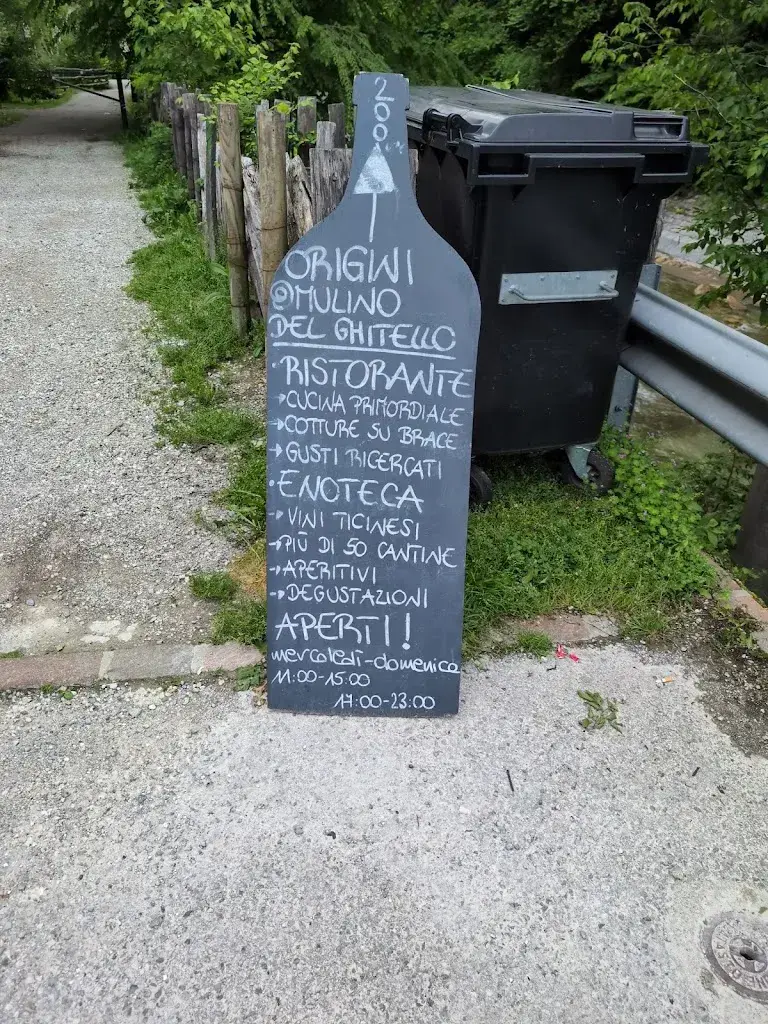 200m
ORIGINI
@MULINO
DEL GHITELLO
· RISTORANTE
→ CUCINA PRIMORDIALE
→ COTTURE SU BRACE
→ GUSTI RICERCATI
· ENOTECA
→ VINI TICINESI
→ PIÙ DI 50 CANTINE
→ APERITIVI
→ DEGUSTAZIONI
APERTI!
mercoledì-domenica
11:00-15:00
17:00-23:00